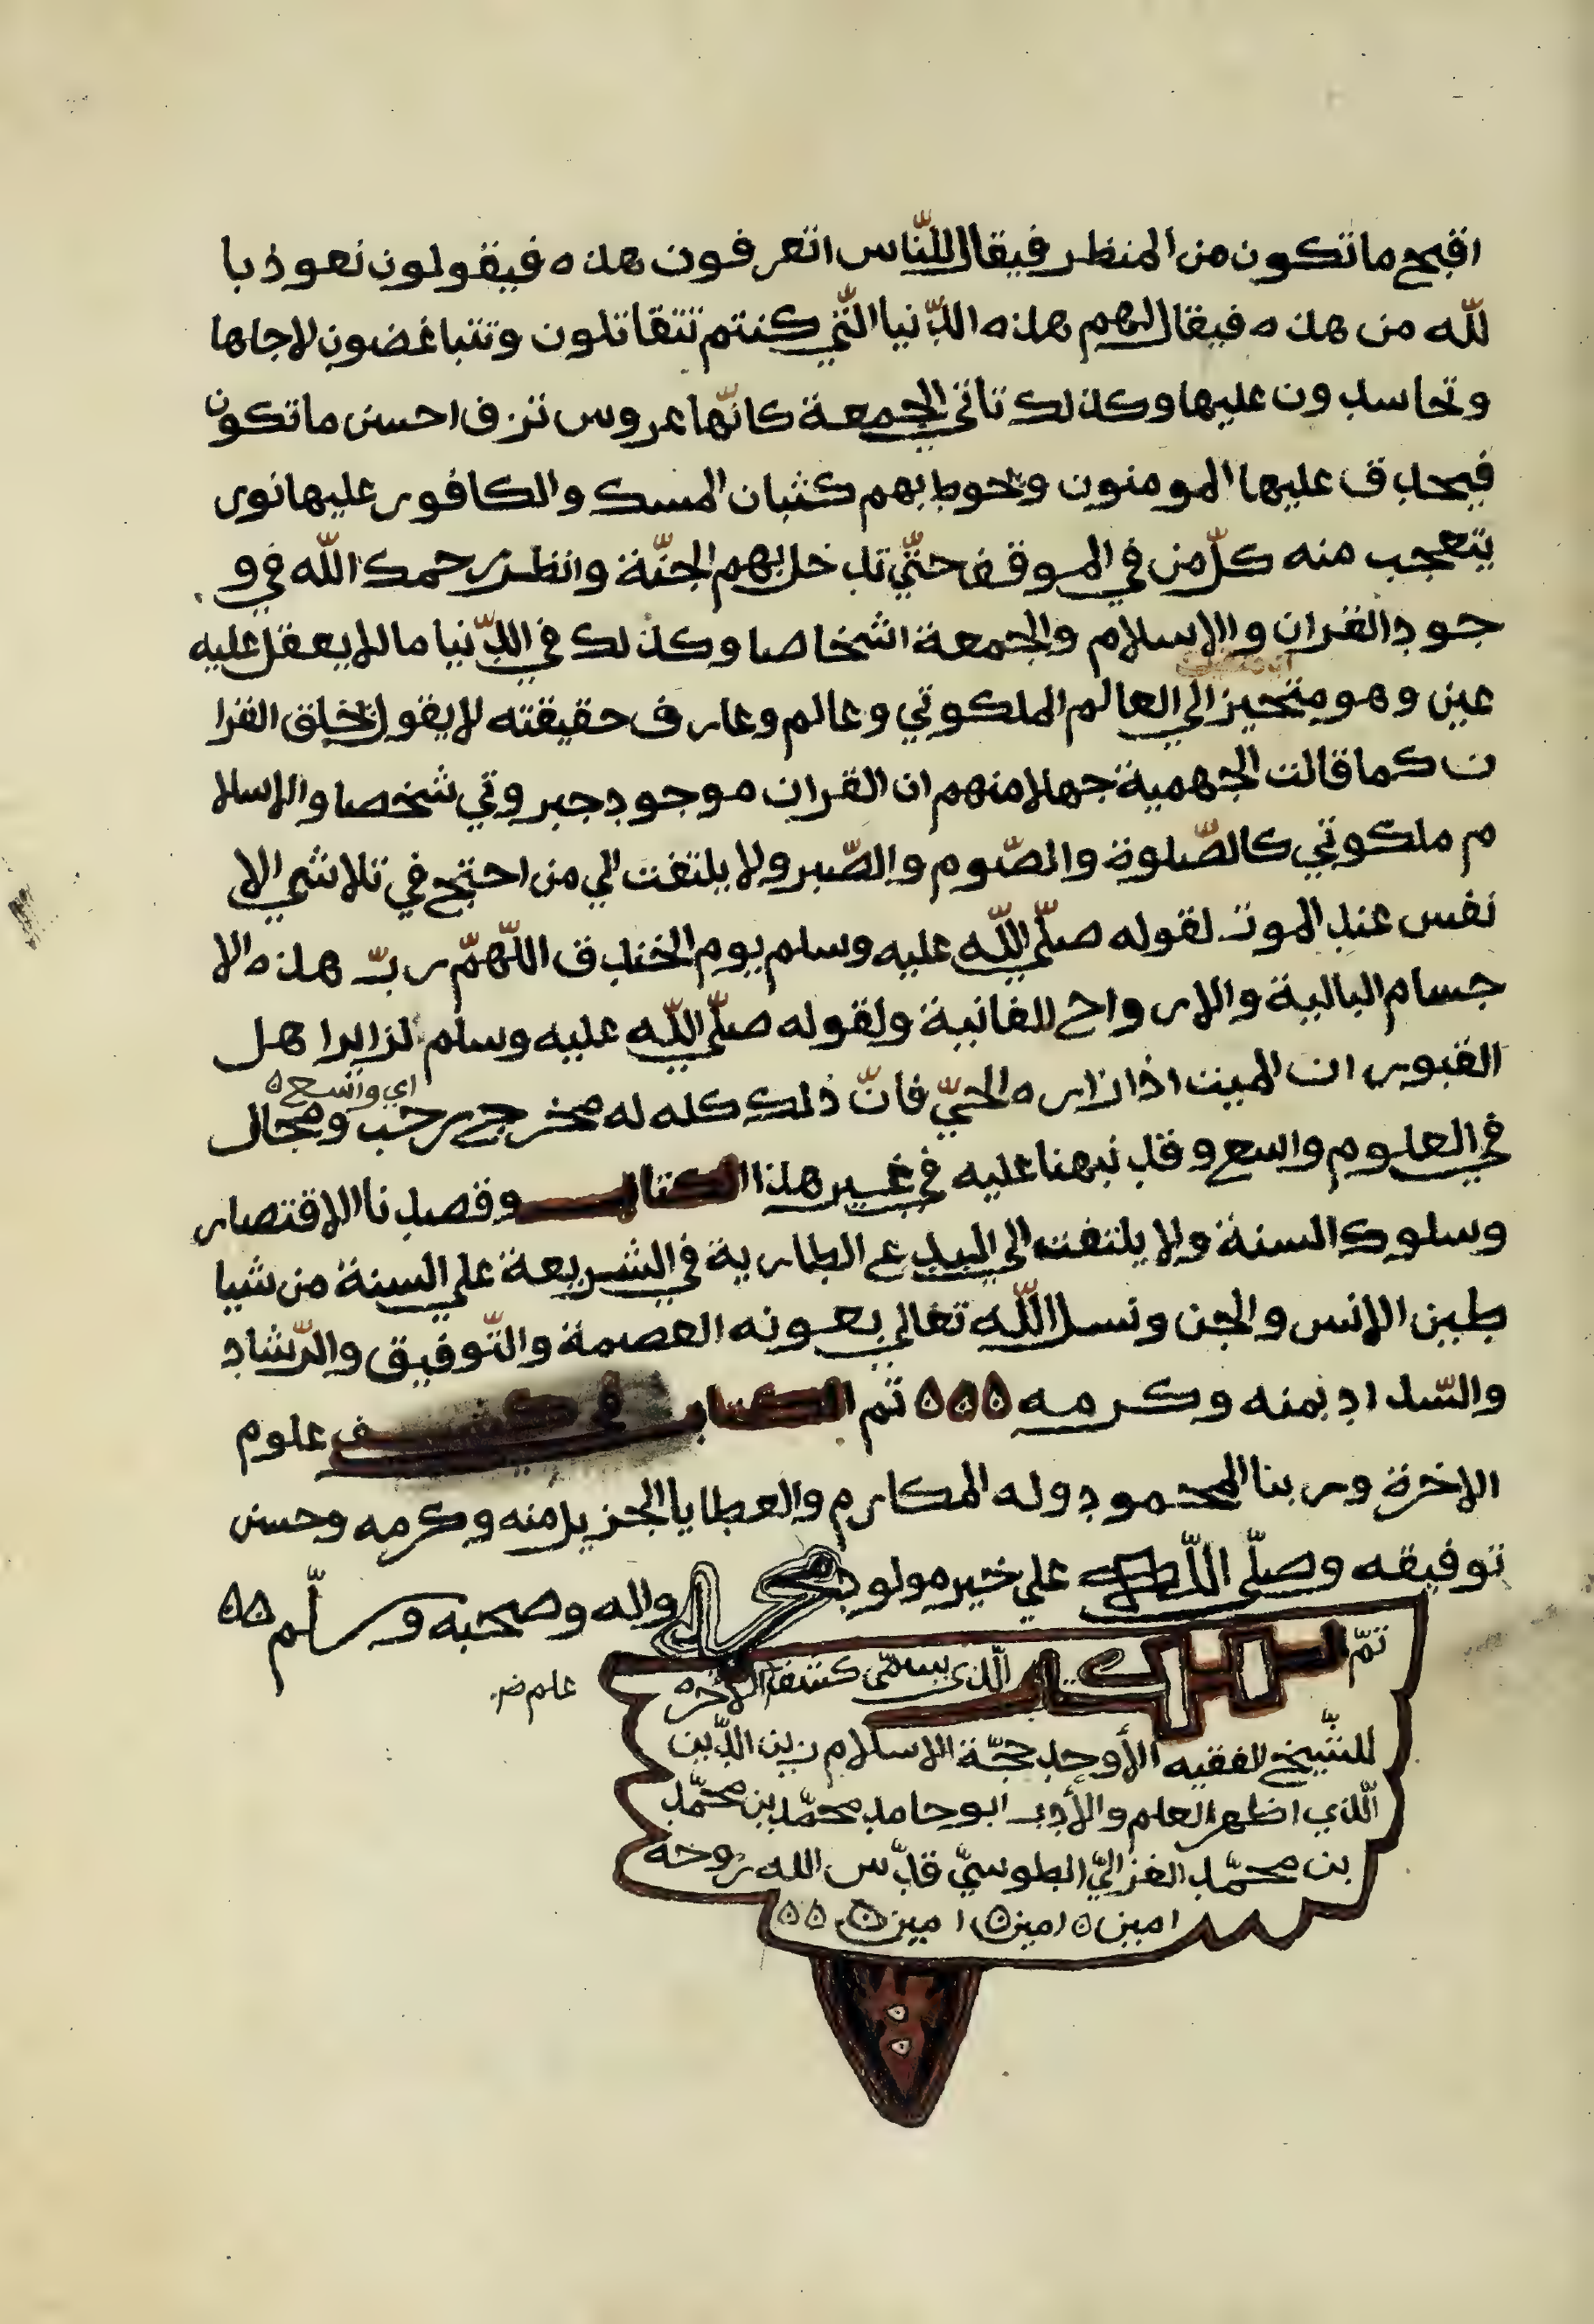 اقبح ما تكون من المنظر فيقال للنّاس اتعرفون هذه فيقولون نعوذ با
للّه من هذه فيقال لهم هذه الدّنيا الّتي كنتم تتقاتلون وتتباغضون لاجلها
وتحاسدون عليها وكذلك تاتي الجمعة كانّها عروس تزف احسن ما تكون
فيحدق عليها المومنون وتحوط بهم كثبان المسك والكافور عليها نور
يتعجب منه كلّ من في الموقف حتّي تدخل بهم الجنّة وانظر رحمك اللّه في و
جود القران والاسلام والجمعة اشخاصا وكذلك في الدّنيا ما لا يعقل عليه
عين وهو متحيز الي العالم الملكوتي وعالم وعارف حقيقته لا يقول بخلق القرا
ن كما قالت الجهمية جهلا منهم ان القران موجود جبروتي شخصا والاسلا
م ملكوتي كالصّلوة والصّوم والصّبر ولا يلتفت الي من احتج في تلاشي الا
نفس عند الموت لقوله صلّي اللّه عليه وسلم يوم الخندق اللّهمّ ربّ هذه الا
جسام البالية والارواح الفانية ولقوله صلّي اللّه عليه وسلم لزايرا هل
القبور ان الميت اذا زاره الحيّ فانّ ذلك كله له مخرج رحب ومجال
اي واتسع ه
في العلوم واسع وقد نبهنا عليه في غير هذا الكتاب وقصدنا الاقتصار
وسلوك السنة ولا يلتفت الي البدع الطارية في الشريعة علي السنة من شيا
طين الانس والجن ونسل اللّه تعالي بعونه العصمة والتّوفيق والرّشاد
والسّداد بمنه وكرمه ٥٥٥ تم الكتاب في كشف علوم
الاخرة وربنا المحمود وله المكارم والعطايا الجزيل منه وكرمه وحسن
توفيقه وصلّي اللّه علي خير مولود محمد واله وصحبه وسلّم ٥٥
تمّ الكتاب الّذي يسمّي كشف الاخره
علوم
للشّيخ الفقيه الأوحد حجّة الاسلام زين الدّين
الّذي اظهر العلم والأدب ابو حامد محمّد بن محمّد
بن محمّد الغزاليّ الطوسيّ قدّس الله روحه
امين ٥ امين ٥ امين ٥٥٥